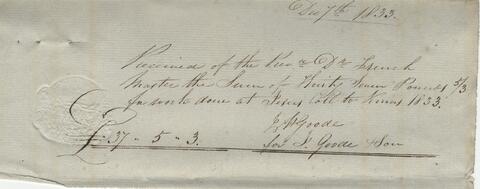 Decr 7th 1833.
Received of the Revd Dr French
Master the Sum of Thirty Seven Pounds 5/3
for work done at Jesus Coll to Xmas 1833.
£ 37 - 5 - 3.
J S Goode
Jos S. Goode & Son